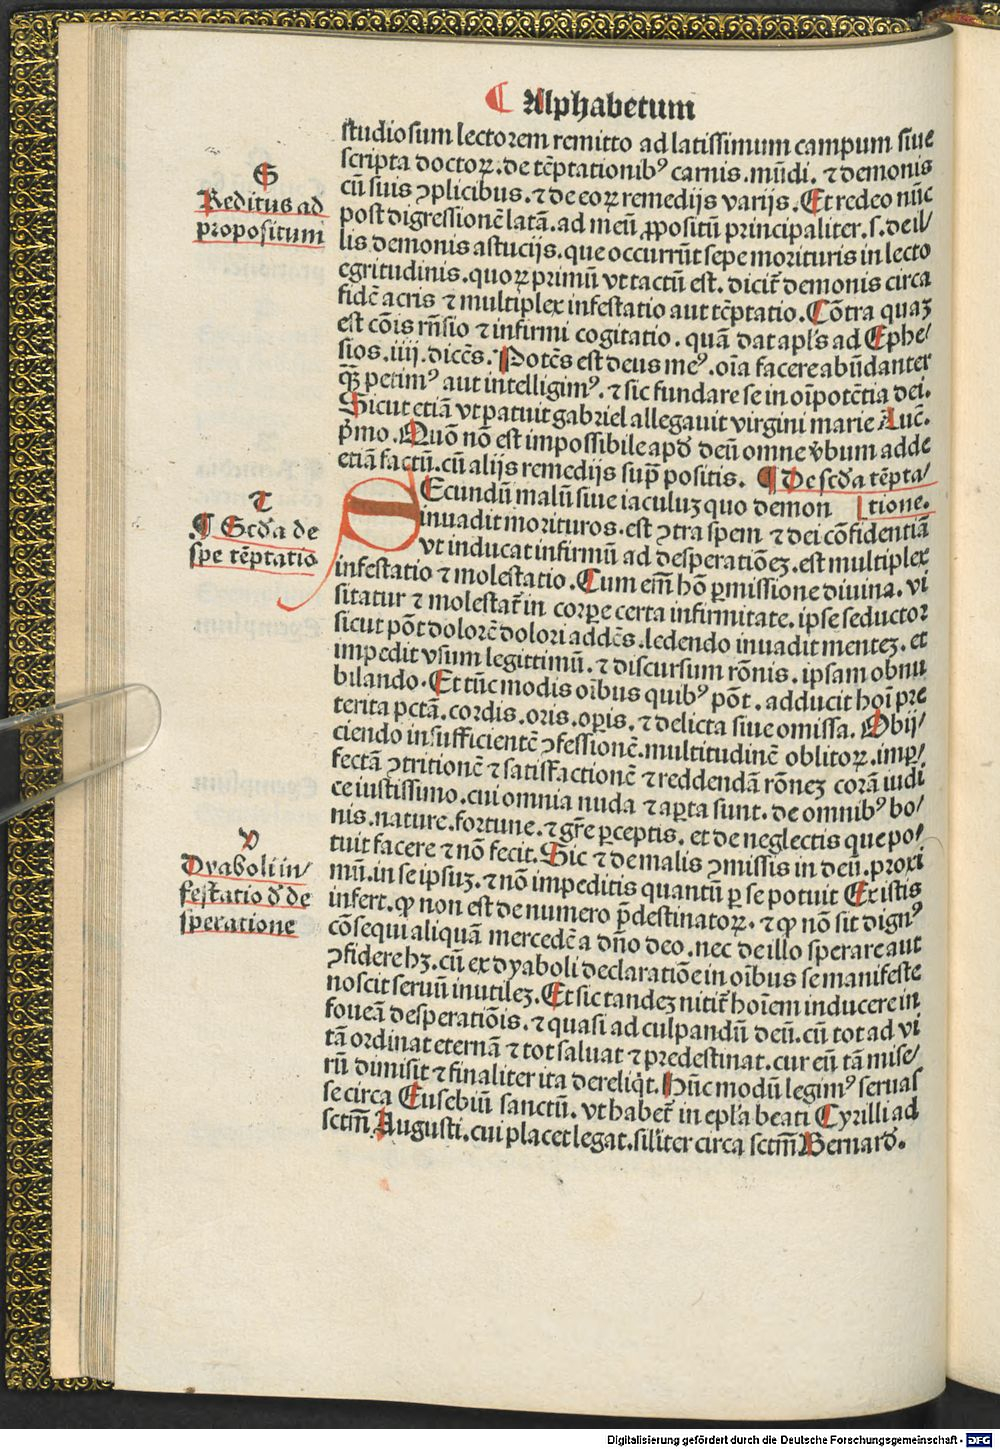 ¶ Alphabetum
S
Reditus ad
propositum
studiosum lectorem remitto ad latissimum campum siue
scripta doctoꝝ. de tẽptationibꝰ carnis. mũdi. ⁊ demonis
cũ suis ꝯplicibus. ⁊ de eoꝝ remedijs varijs. Et redeo nũc
post digressionẽ latã. ad meũ ꝓpositũ principaliter. s. de il/
lis demonis astucijs. que occurrũt sepe morituris in lecto
egritudinis. quoꝝ primũ vt tactũ est. dicit᷑ demonis circa
fidẽ acris ⁊ multiplex infestatio aut tẽptatio. Cõtra quaꝫ
est cõis rñsio ⁊ infirmi cogitatio. quã dat apl's ad Ephe/
sios. iiij. dicẽs. Potẽs est deus meꝰ. oĩa facere abũdanter
ꝙ̃ petimꝰ aut intelligimꝰ. ⁊ sic fundare se in oĩpotẽtia dei.
Sicut etiã vt patuit gabriel allegauit virgini marie Luc̃.
p̃mo. Quõ nõ est impossibile apđ deũ omne v̉bum adde
etiã factũ. cũ alijs remedijs sup̃ positis. ¶ De scđa tẽpta/
tione.
T
¶ Scđa de
spe tẽptatio
SEcundũ malũ siue iaculuꝫ quo demon
inuadit morituros. est ꝯtra spem ⁊ dei cõfidentiã
vt inducat infirmũ ad desperatiõeꝫ. est multiplex
infestatio ⁊ molestatio. Cum em̃ hõ ꝑmissione diuina. vi
sitatur ⁊ molestat᷑ in corꝑe certa infirmitate. ipse seductor
sicut põt dolorẽ dolori addẽs. ledendo inuadit menteꝫ. et
impedit vsum legittimũ. ⁊ discursum rõnis. ipsam obnu
bilando. Et tũc modis oĩbus quibꝰ põt. adducit hoĩ pre
terita pctã. cordis. oris. oꝑis. ⁊ delicta siue omissa. Obij/
ciendo insufficientẽ ꝯfessionẽ. multitudinẽ oblitoꝝ. imꝑ/
fectã ꝯtritionẽ ⁊ satisfactionẽ ⁊ reddendã rõneꝫ corã iudi
ce iustissimo. cui omnia nuda ⁊ aꝑta sunt. de omnibꝰ bo/
nis. nature. fortune. ⁊ gr̃e ꝑceptis. et de neglectis que po/
tuit facere ⁊ nõ fecit. Sic ⁊ de malis ꝯmissis in deũ. proxi
mũ. in se ipsuꝫ. ⁊ nõ impeditis quantũ ꝑ se potuit Ex istis
infert. ꝙ non est de numero p̃destinatoꝝ. ⁊ ꝙ nõ sit dignꝰ
cõsequi aliquã mercedẽ a dño deo. nec de illo sperare aut
ꝯfidere hꝫ. cũ ex dyaboli declaratiõe in oĩbus se manifeste
noscit seruũ inutileꝫ. Et sic tandeꝫ nitit᷑ hoĩem inducere in
foueã desperatiõis. ⁊ quasi ad culpandũ deũ. cũ tot ad vi
tã ordinat eternã ⁊ tot saluat ⁊ predestinat. cur eũ tã mise/
rũ dimisit ⁊ finaliter ita dereliq̇t. Hũc modũ legimꝰ seruas
se circa Eusebiũ sanctũ. vt habet᷑ in epl'a beati Cyrilli ad
sctm̃ Augusti. cui placet legat. sil'iter circa sctm̃ Bernarđ.
V
Dyaboli in/
festatio đ de
speratione
Digitalisierung gefördert durch die Deutsche Forschungsgemeinschaft - DFG